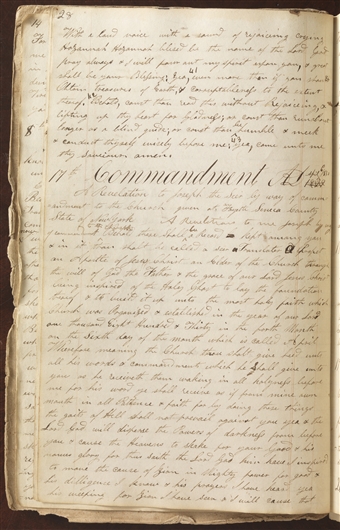 28
With a loud voice with a sound of rejoicing crying
Hozannah Hozannah blesed be the name of the Lord God
Pray always & I will pour out my spirit upon you, & great
shall be your Blessing; Yea, even more than if you should
Obtain treasures of Earth, & corruptibleness to the extent
thereof. Behold, canst thou read this without Rejoiceing, &
lifting up thy heart for gladness; or canst thou run about
longer as a blind guide; or canst thou be humble & meek
& conduct thyself wisely before me; Yea, come unto me
thy Saviour. amen
17th Commandment AD
A Revelation to Joseph the Seer by way of comm
andment to the Church given at Fayette Seneca County
State of New York
there shall be a Record Kept among you
& in it thou shalt be called a Seer & Translater & Prophet
an Apostle of Jesus Christ an Elder of the Church through
the will of God the Father & the grace of our Lord Jesus Christ
being inspired of the Holy Ghost to lay the foundation
thereof & to build it up unto the most holy faith which
church was Organized & established in the year of our Lord
one thousand Eight Hundred & Thirty in the forth Month
on the Sixth day of the month which is called April
Wherefore meaning the Church thou shalt give heed unto
all his words & commandments which he shall give unto
you as he receiveth them walking in all holyness before
me for his word ye shall receive as if from mine own
mouth in all Patience & faith for by doing these things
the gaits of Hell shall not prevail against you yea & the
Lord God will disperse the Powers of darkness from before
you & cause the Heavens to shake for your Good & his
names glory for thus saith the Lord God him have I inspired
to move the cause of Zion in Mighty power for good &
his dilligence I know & his prayers I have heard yea
his weeping for Zion I have seen & I will cause that